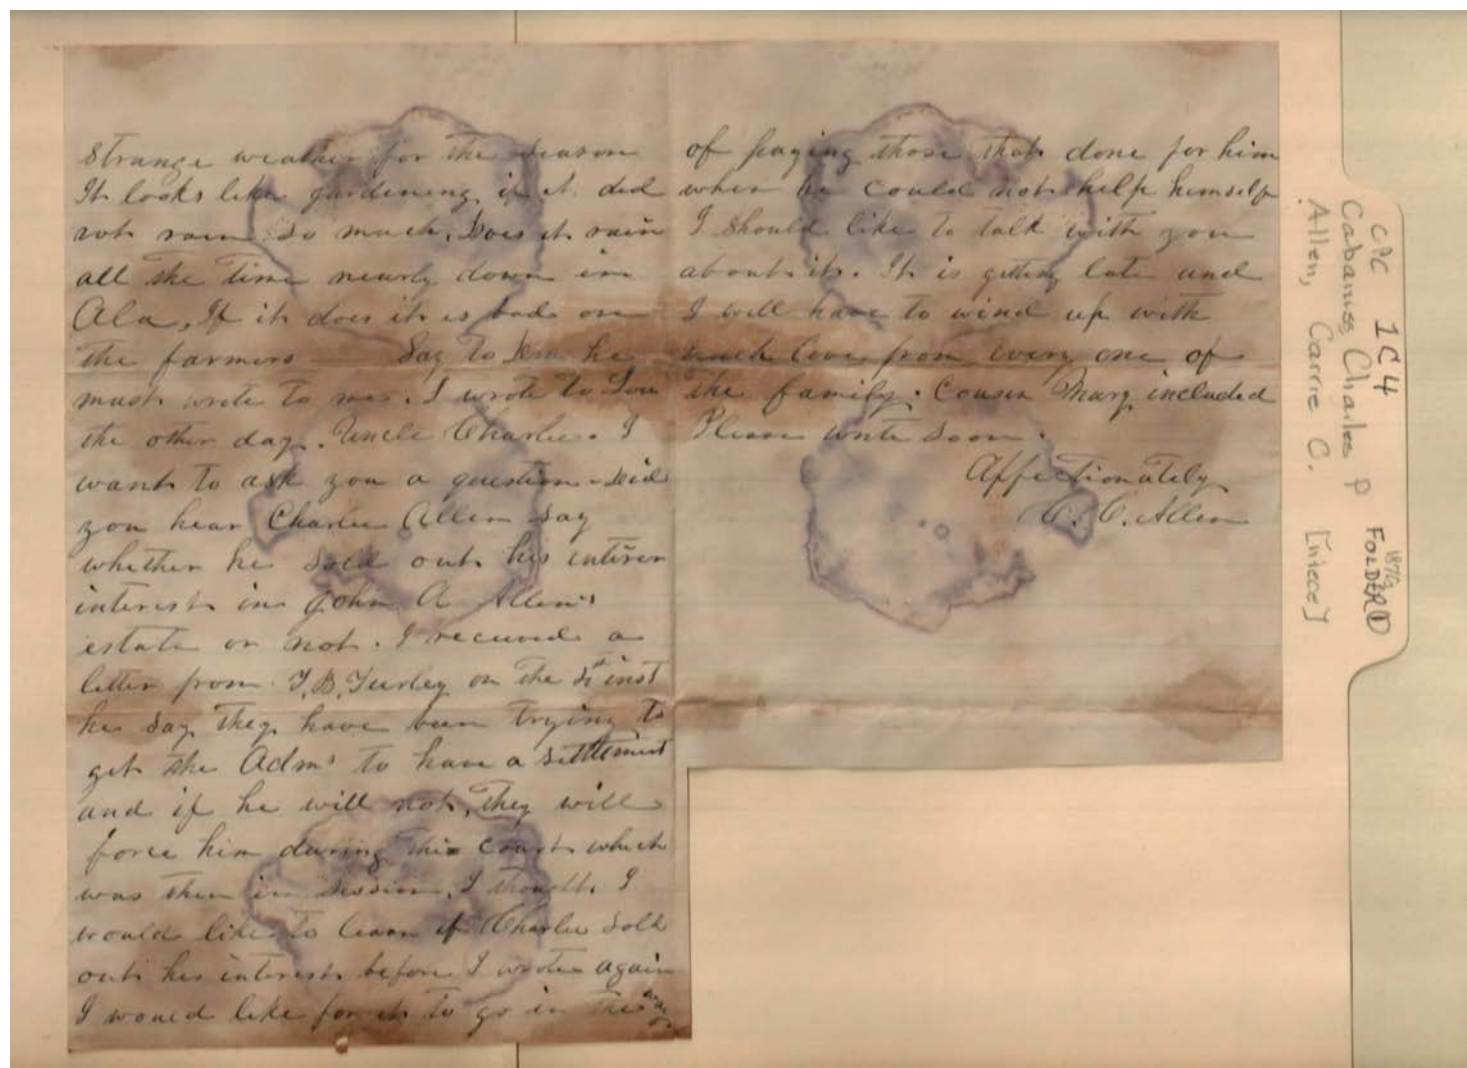 strange weather for the season
It looks like gardening if it did
not rain so much. Does it rain
all the time nearly down in
Ala, If it does it is bad on
the farmers — Say to he
must write to me. I wrote to Lou
the other day. Uncle Charlie. I
want to ask you a question - Did
you hear Charlie Allen say
whether he sold out his
interest in John A Allen's
estate or not. I received a
letter from T. B. Turley on the inst
he say they have been trying to
get the Adm to have a settlement
and if he will not, they will
force him during this court which
was then in session. I thought I
would like to learn if Charlie sold
out his interest before I wrote again
I would like for it to go in the way
of paying those that done for him
when he could not help himself
I should like to talk with you
about it. It is getting late and
I will have to wind up with
much love from every one of
the family. Cousin Mary included
Please write soon.
Affectionately
C. C. Allen
CPC 1C4 1876 FOLDER ①
Cabaniss, Charles P
Allen, Carrie C. [niece]